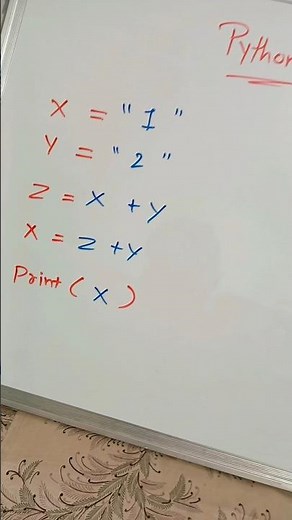 Python
X = "1"
Y = "2"
Z = X + Y
X = Z + Y
Print(X)